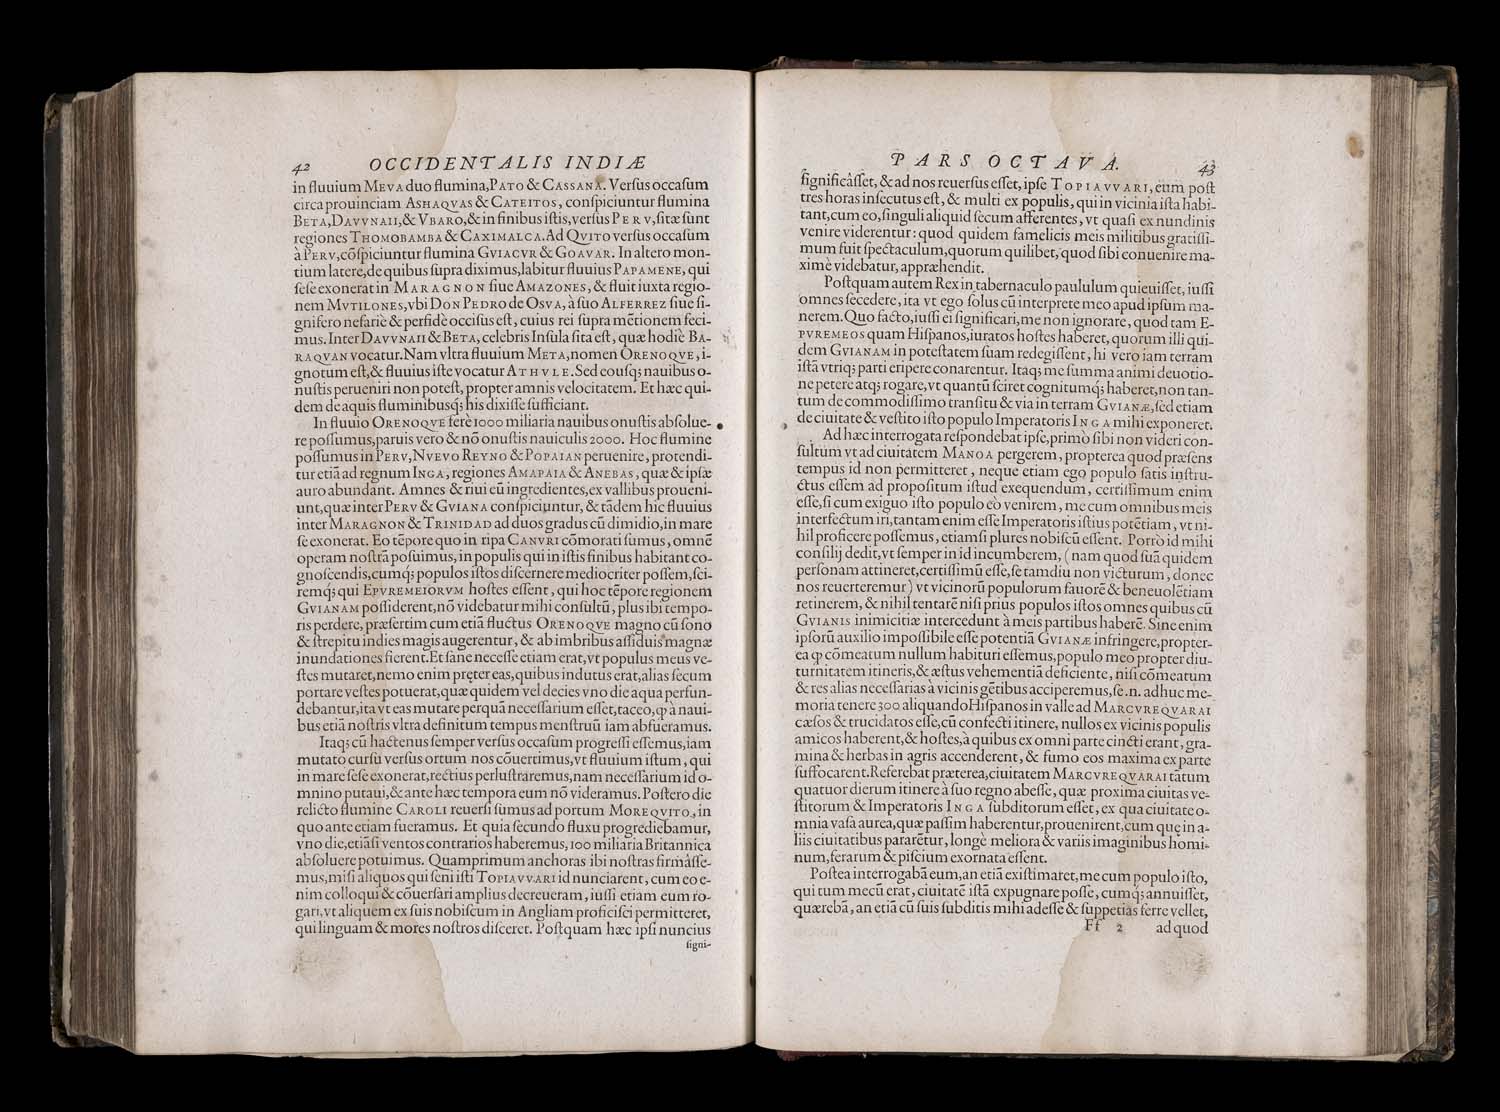 42 OCCIDENTALIS INDIÆ
in fluuium MEVA duo flumina, PATO & CASSANA. Verſus occaſum
circa prouinciam ASHAQVAS & CATEITOS, conſpiciuntur flumina
BETA, DAVVNAII, & VBARO, & in finibus iſtis, verſus PERV, ſitæ ſunt
regiones THOMOBAMBA & CAXIMALCA. Ad QVITO verſus occaſum
à PERV, cõſpiciuntur flumina GVIACVR & GOAVAR. In altero mon-
tium latere, de quibus ſupra diximus, labitur fluuius PAPAMENE, qui
ſeſe exonerat in MARAGNON ſiue AMAZONES, & fluit iuxta regio-
nem MVTILONES, vbi DON PEDRO de OSVA, à ſuo ALFERREZ ſiue ſi-
gnifero nefariè & perfidè occiſus eſt, cuius rei ſupra mẽtionem feci-
mus. Inter DAVVNAII & BETA, celebris Inſula ſita eſt, quæ hodiè BA-
RAQVAN vocatur. Nam vltra fluuium META, nomen ORENOQVE, i-
gnotum eſt, & fluuius iſte vocatur ATHVLE. Sed eouſq; nauibus o-
nuſtis perueniri non poteſt, propter amnis velocitatem. Et hæc qui-
dem de aquis fluminibusq; his dixiſſe ſufficiant.
In fluuio ORENOQVE ferè 1000 miliaria nauibus onuſtis abſolue-
re poſſumus, paruis vero & nõ onuſtis nauiculis 2000. Hoc flumine
poſſumus in PERV, NVEVO REYNO & POPAIAN peruenire, protendi-
tur etiã ad regnum INGA, regiones AMAPAIA & ANEBAS, quæ & ipſæ
auro abundant. Amnes & riui eũ ingredientes, ex vallibus proueni-
unt, quæ inter PERV & GVIANA conſpiciuntur, & tãdem hic fluuius
inter MARAGNON & TRINIDAD ad duos gradus cũ dimidio, in mare
ſe exonerat. Eo tẽpore quo in ripa CANVRI cõmorati ſumus, omnẽ
operam noſtrã poſuimus, in populis qui in iſtis finibus habitant co-
gnoſcendis, cumq; populos iſtos diſcernere mediocriter poſſem, ſci-
remq; qui EPVREMEIORVM hoſtes eſſent, qui hoc tẽpore regionem
GVIANAM poſſiderent, nõ videbatur mihi conſultũ, plus ibi tempo-
ris perdere, præſertim cum etiã fluctus ORENOQVE magno cũ ſono
& ſtrepitu indies magis augerentur, & ab imbribus aſſiduis magnæ
inundationes fierent. Et ſane neceſſe etiam erat, vt populus meus ve-
ſtes mutaret, nemo enim pręter eas, quibus indutus erat, alias ſecum
portare veſtes potuerat, quæ quidem vel decies vno die aqua perfun-
debantur, ita vt eas mutare perquã neceſſarium eſſet, taceo, ꝙ à naui-
bus etiã noſtris vltra definitum tempus menſtruũ iam abfueramus.
Itaq; cũ hactenus ſemper verſus occaſum progreſſi eſſemus, iam
mutato curſu verſus ortum nos cõuertimus, vt fluuium iſtum, qui
in mare ſeſe exonerat, rectius perluſtraremus, nam neceſſarium id o-
mnino putaui, & ante hæc tempora eum nõ videramus. Poſtero die
relicto flumine CAROLI reuerſi ſumus ad portum MOREQVITO, in
quo ante etiam fueramus. Et quia ſecundo fluxu progrediebamur,
vno die, etiãſi ventos contrarios haberemus, 100 miliaria Britannica
abſoluere potuimus. Quamprimum anchoras ibi noſtras firmâſſe-
mus, miſi aliquos qui ſeni iſti TOPIAVVARI id nunciarent, cum eo e-
nim colloqui & cõuerſari amplius decreueram, iuſſi etiam eum ro-
gari, vt aliquem ex ſuis nobiſcum in Angliam proficiſci permitteret,
qui linguam & mores noſtros diſceret. Poſtquam hæc ipſi nuncius
ſigni-
PARS OCTAVA. 43
ſignificâſſet, & ad nos reuerſus eſſet, ipſe TOPIAVVARI, eum poſt
tres horas inſecutus eſt, & multi ex populis, qui in vicinia iſta habi-
tant, cum eo, ſinguli aliquid ſecum afferentes, vt quaſi ex nundinis
venire viderentur: quod quidem famelicis meis militibus gratiſſi-
mum fuit ſpectaculum, quorum quilibet, quod ſibi conuenire ma-
ximè videbatur, appræhendit.
Poſtquam autem Rex in tabernaculo paululum quieuiſſet, iuſſi
omnes ſecedere, ita vt ego ſolus cũ interprete meo apud ipſum ma-
nerem. Quo facto, iuſſi ei ſignificari, me non ignorare, quod tam E-
PVREMEOS quam Hiſpanos, iuratos hoſtes haberet, quorum illi qui-
dem GVIANAM in poteſtatem ſuam redegiſſent, hi vero iam terram
iſtã vtriq; parti eripere conarentur. Itaq; me ſumma animi deuotio-
ne petere atq; rogare, vt quantũ ſciret cognitumq; haberet, non tan-
tum de commodiſſimo tranſitu & via in terram GVIANÆ, ſed etiam
de ciuitate & veſtito iſto populo Imperatoris INGA mihi exponeret.
Ad hæc interrogata reſpondebat ipſe, primò ſibi non videri con-
ſultum vt ad ciuitatem MANOA pergerem, propterea quod præſens
tempus id non permitteret, neque etiam ego populo ſatis inſtru-
ctus eſſem ad propoſitum iſtud exequendum, certiſſimum enim
eſſe, ſi cum exiguo iſto populo eò venirem, me cum omnibus meis
interfectum iri, tantam enim eſſe Imperatoris iſtius potẽtiam, vt ni-
hil proficere poſſemus, etiamſi plures nobiſcũ eſſent. Porrò id mihi
conſilij dedit, vt ſemper in id incumberem, (nam quod ſuã quidem
perſonam attineret, certiſſimũ eſſe, ſe tamdiu non victurum, donec
nos reuerteremur) vt vicinorũ populorum fauorẽ & beneuolẽtiam
retinerem, & nihil tentarẽ niſi prius populos iſtos omnes quibus cũ
GVIANIS inimicitiæ intercedunt à meis partibus haberẽ. Sine enim
ipſorũ auxilio impoſſibile eſſe potentiã GVIANÆ infringere, propter-
ea ꝙ cõmeatum nullum habituri eſſemus, populo meo propter diu-
turnitatem itineris, & æſtus vehementiã deficiente, niſi cõmeatum
& res alias neceſſarias à vicinis gẽtibus acciperemus, ſe.n. adhuc me-
moria tenere 300 aliquando Hiſpanos in valle ad MARCVREQVARAI
cæſos & trucidatos eſſe, cũ confecti itinere, nullos ex vicinis populis
amicos haberent, & hoſtes, à quibus ex omni parte cincti erant, gra-
mina & herbas in agris accenderent, & fumo eos maxima ex parte
ſuffocarent. Referebat præterea, ciuitatem MARCVREQVARAI tãtum
quatuor dierum itinere à ſuo regno abeſſe, quæ proxima ciuitas ve-
ſtitorum & Imperatoris INGA ſubditorum eſſet, ex qua ciuitate o-
mnia vaſa aurea, quæ paſſim haberentur, prouenirent, cum quę in a-
liis ciuitatibus pararẽtur, longè meliora & variis imaginibus homi-
num, ferarum & piſcium exornata eſſent.
Poſtea interrogabã eum, an etiã exiſtimaret, me cum populo iſto,
qui tum mecũ erat, ciuitatẽ iſtã expugnare poſſe, cumq; annuiſſet,
quærebã, an etiã cũ ſuis ſubditis mihi adeſſe & ſuppetias ferre vellet,
Ff 2 ad quod